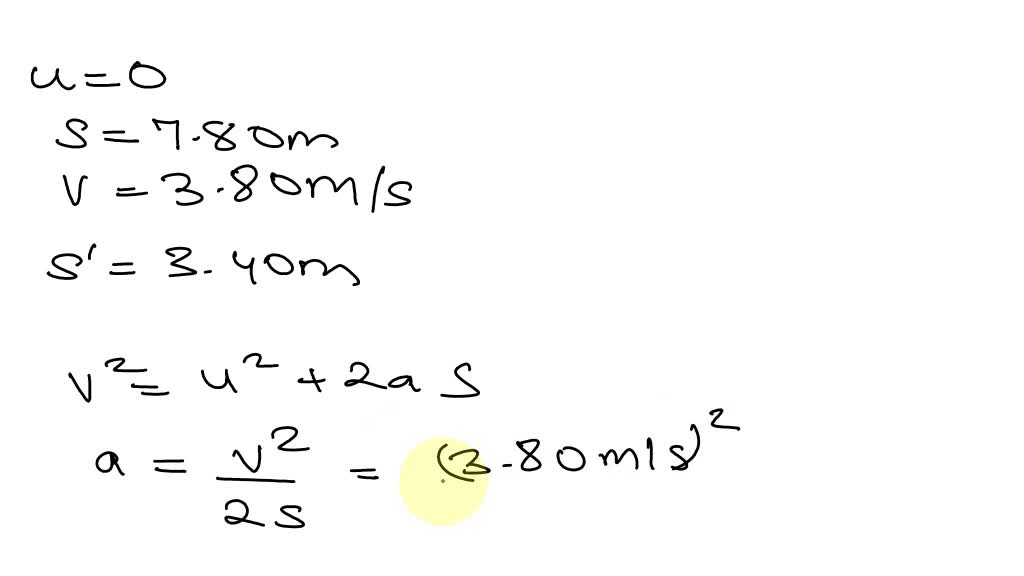 u = 0
s = 7.80m
v = 3.80m/s
s' = 3.40m
v² = u² + 2a s
a = v²/2s = (3.80m/s)²